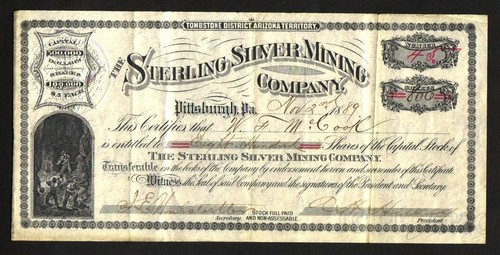 TOMBSTONE DISTRICT ARIZONA TERRITORY.
CAPITAL
500,000
DOLLARS
SHARES
100,000
$5 EACH
NUMBER
SHARES
THE STERLING SILVER MINING
COMPANY.
Pittsburgh, Pa. Nov 23 1889
This Certifies that W. F. McCook
is entitled to Eight Hundred Shares of the Capital Stock of
THE STERLING SILVER MINING COMPANY.
Transferable on the books of the Company by endorsement hereon and surrender of this Certificate
Witness the Seal of said Company and the signatures of the President and Secretary.
STOCK FULL PAID
Secretary. AND NON-ASSESSABLE. President